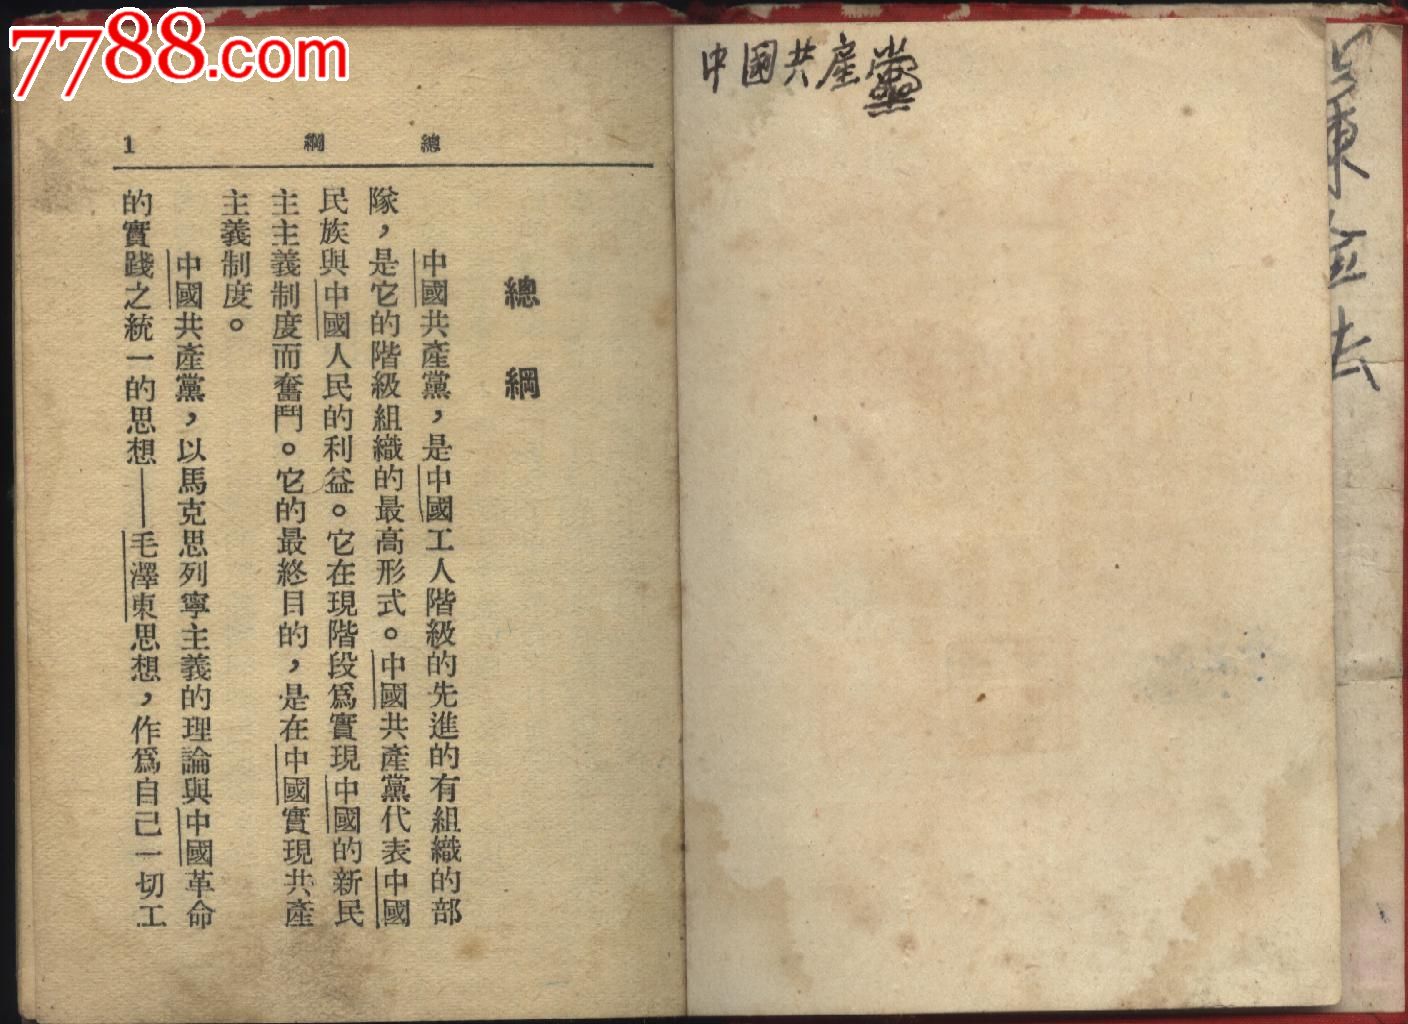 7788.com
中國共產黨
東
去
總 綱 1
總 綱
中國共產黨，是中國工人階級的先進的有組織的部
隊，是它的階級組織的最高形式。中國共產黨代表中國
民族與中國人民的利益。它在現階段爲實現中國的新民
主主義制度而奮鬥。它的最終目的，是在中國實現共產
主義制度。
中國共產黨，以馬克思列寧主義的理論與中國革命
的實踐之統一的思想——毛澤東思想，作爲自己一切工